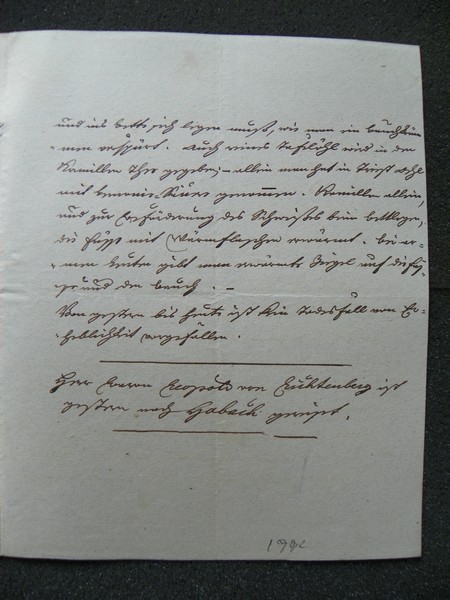 und ins bette sich legen muß, wie man ein bauchkrim-
men verspürt. Auch eines Eßlöffel wird in den
Kamillen Thee gegeben – allein man hat in Triest Oehl
mit Säure genommen. Kamillen allein,
und zur Beförderung des Schweißes beim bettlegen,
die Füße mit Wärmflaschen erwärmt. bei ar-
men leuten gibt man erwärmte Ziegel auf die Fü-
ße und den bauch. –
Von gestern bis heute ist kein Todesfall von Er-
heblichkeit vorgefallen.
Herr Baron Leopold von Lichtenberg ist
gestern nach Habach gereist.